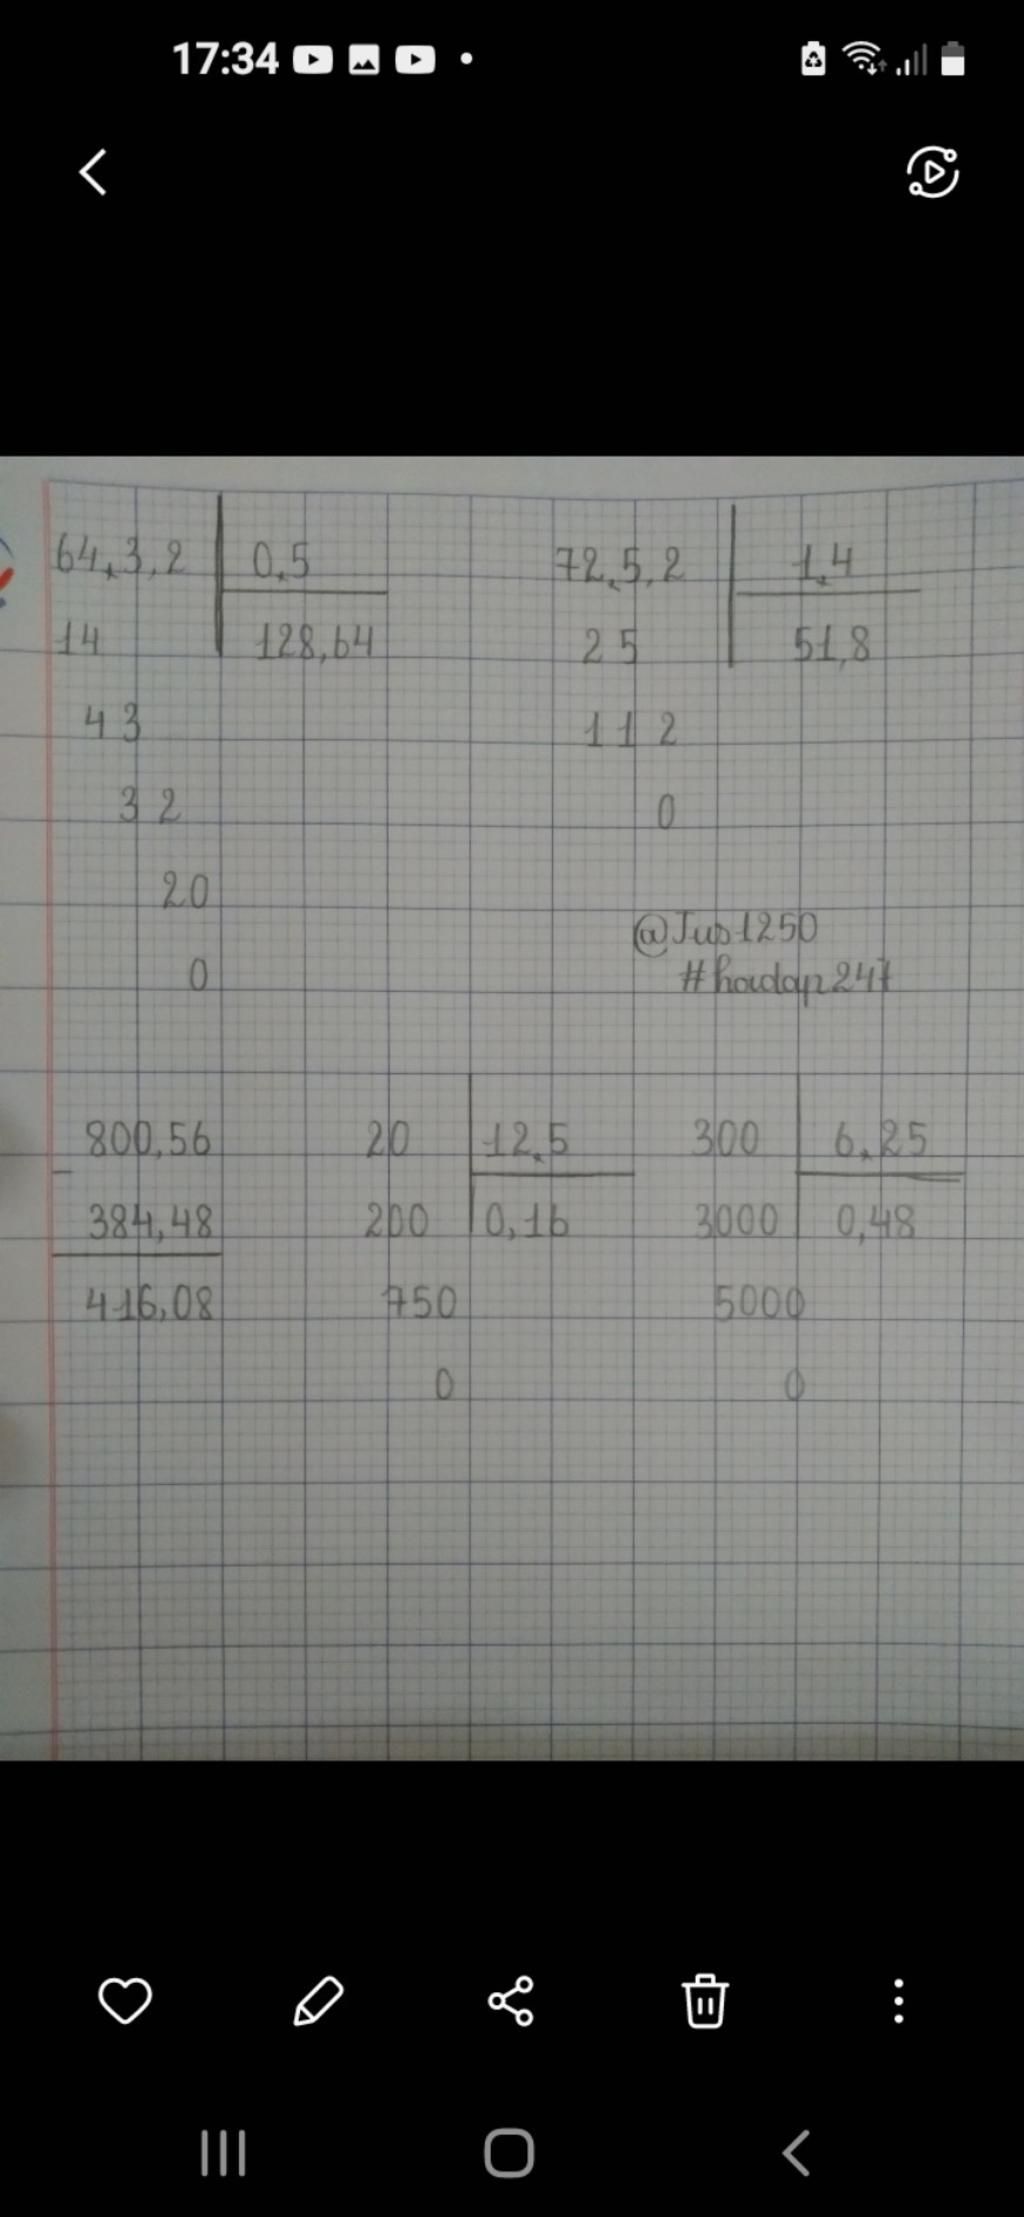 17:34
64,3,2 0,5
14 128,64
43
32
20
0
72,5,2 1,4
25 51,8
112
0
@Jus1250
#hoidap247
800,56
-
384,48
416,08
20 12,5
200 0,16
750
0
300 6,25
3000 0,48
5000
0